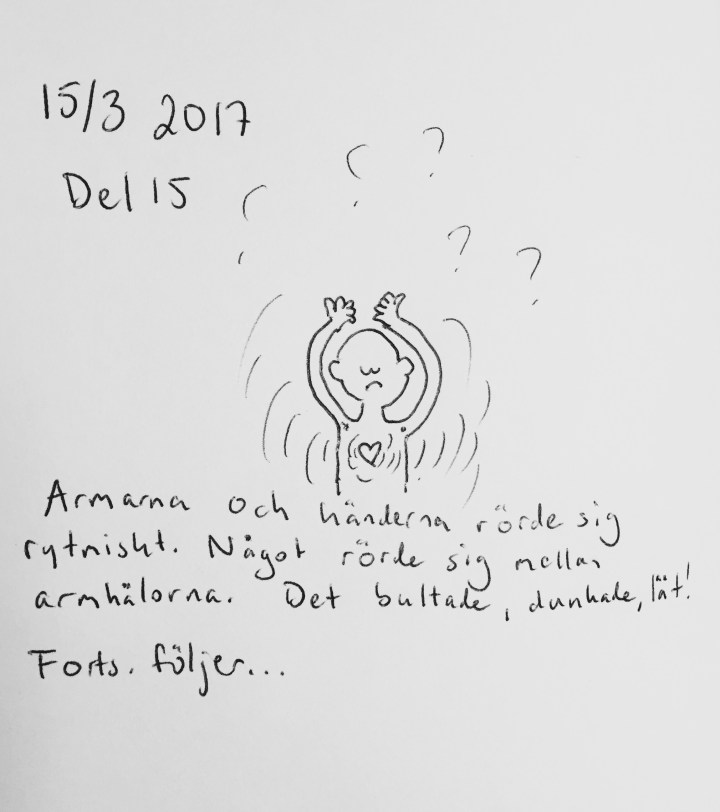 15/3 2017
Del 15
? ?
? ?
Armarna och händerna rörde sig
rytmiskt. Något rörde sig mellan
armhålorna. Det bultade, dunkade, lät!
Forts. följer...